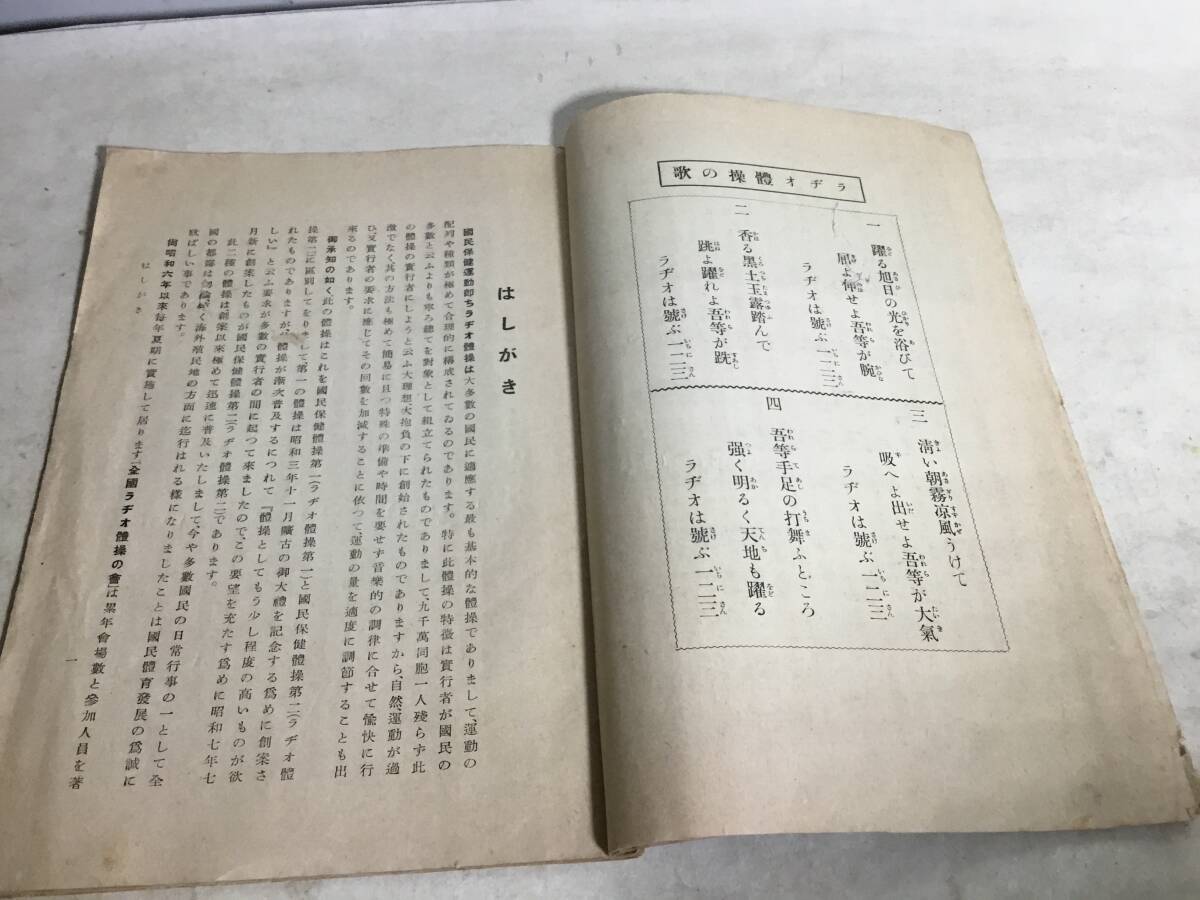 ラヂオ體操の歌
一 躍る旭日の光を浴びて
屈よ伸せよ吾等が腕
ラヂオは號ぶ一二三
二 香る黑土玉露踏んで
跳よ躍れよ吾等が跣
ラヂオは號ぶ一二三
三 淸い朝霧凉風うけて
吸へよ出せよ吾等が大氣
ラヂオは號ぶ一二三
四 吾等手足の打舞ふところ
强く明るく天地も躍る
ラヂオは號ぶ一二三
はしがき
國民保健運動卽ちラヂオ體操は大多數の國民に適應する最も基本的な體操でありまして、運動の
配列や種類が極めて合理的に構成されてゐるのであります。特に此體操の特徵は實行者が國民の
多數と云ふよりも寧ろ總てを對象として組立てられたものでありまして、九千萬同胞一人殘らず此
の體操の實行者にしようと云ふ大理想、大抱負の下に創始されたものでありますから、自然、運動が過
激でなく、其の方法も極めて簡易に且つ特殊の準備や時間を要せず音樂的の調律に合せて愉快に行
ひ、又實行者の要求に應じてその回數を加減することに依つて、運動の量を適度に調節することも出
來るのであります。
御承知の如く此の體操はこれを國民保健體操第一(ラヂオ體操第一)と國民保健體操第二(ラヂオ體
操第二)に區別してをりまして第一の體操は昭和三年十一月曠古の御大禮を記念する爲めに創案さ
れたものでありますが、體操が漸次普及するにつれて『體操としてもう少し程度の高いものが欲
しい』と云ふ要求が多數の實行者の間に起つて來ましたので、この要望を充たす爲めに昭和七年七
月新に創案したものが國民保健體操第二(ラヂオ體操第二)であります。
此二種の體操は創案以來極めて迅速に普及いたしまして、今や多數國民の日常行事の一として全
國の都鄙は勿論、遠く海外殖民地の方面に迄行はれる樣になりましたことは國民體育發展の爲誠に
欣ばしい事であります。
尙昭和六年以來每年夏期に實施して居ります「全國ラヂオ體操の會」は累年會場數と參加人員を著
はしがき
一